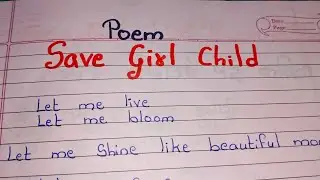 Poem
Save Girl Child
Let me live
Let me bloom
Let me Shine like beautiful